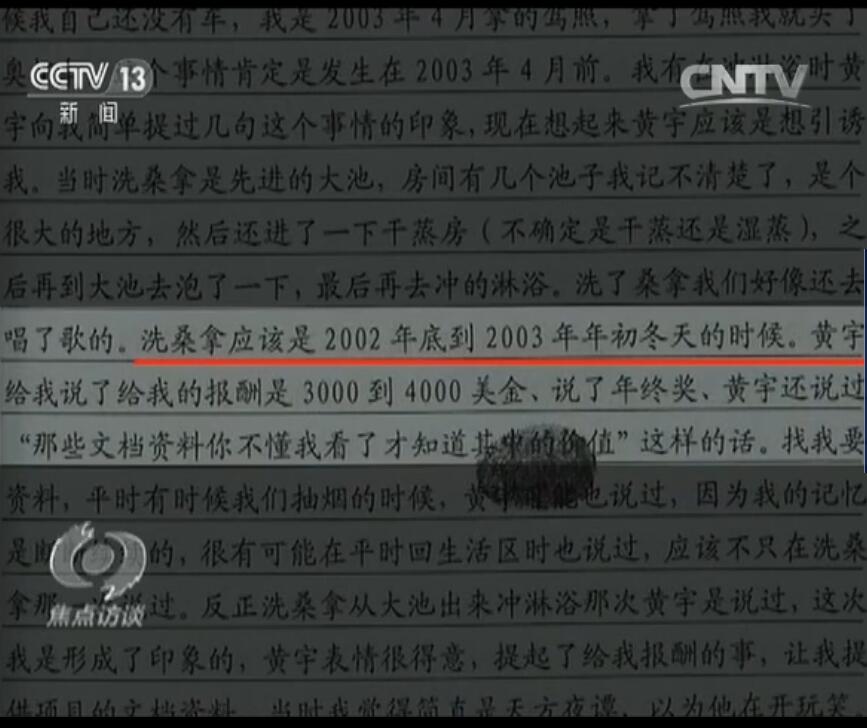 候我自己还没有车，我是 2003 年 4 月拿的驾照，拿了驾照我就买了
CCTV 13
新闻
CNTV
奥 个事情肯定是发生在 2003 年 4 月前。我有在冲淋浴时黄
宇向我简单提过几句这个事情的印象，现在想起来黄宇应该是想引诱
我。当时洗桑拿是先进的大池，房间有几个池子我记不清楚了，是个
很大的地方，然后还进了一下干蒸房（不确定是干蒸还是湿蒸），之
后再到大池去泡了一下，最后再去冲的淋浴。洗了桑拿我们好像还去
唱了歌的。洗桑拿应该是 2002 年底到 2003 年年初冬天的时候。黄宇
给我说了给我的报酬是 3000 到 4000 美金、说了年终奖、黄宇还说过
“那些文档资料你不懂我看了才知道其中的价值”这样的话。找我要
资料，平时有时候我们抽烟的时候，黄宇可能也说过，因为我的记忆
是断 的，很有可能在平时回生活区时也说过，应该不只在洗桑
拿那 说过。反正洗桑拿从大池出来冲淋浴那次黄宇是说过，这次
焦点访谈
我是形成了印象的，黄宇表情很得意，提起了给我报酬的事，让我提
供项目的文档资料，当时我觉得简直是天方夜谭，以为他在开玩笑，